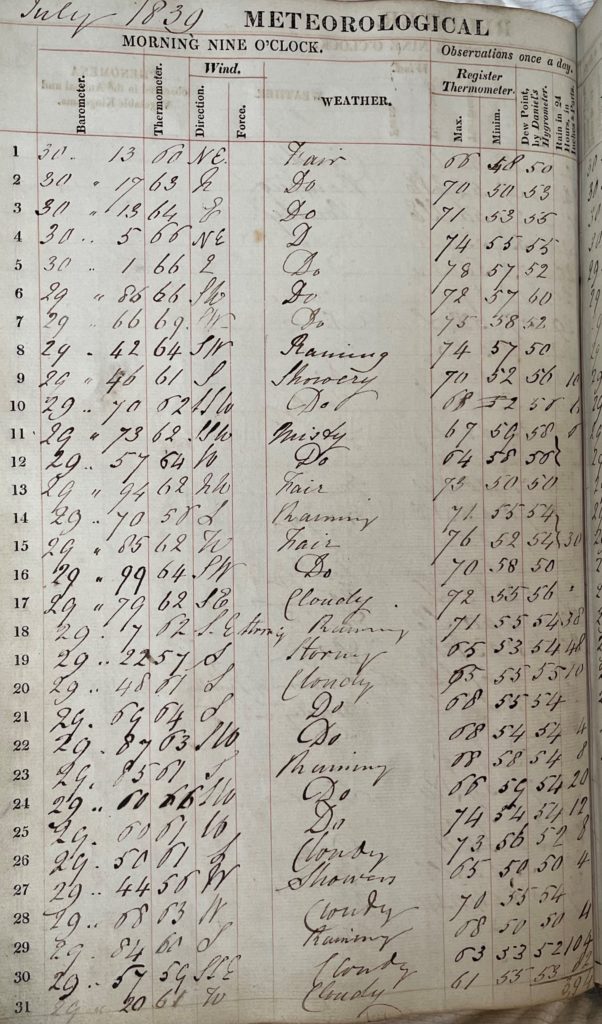 July 1839 METEOROLOGICAL
MORNING NINE O'CLOCK. Observations once a day.
Barometer. Thermometer. Wind. WEATHER. Register Thermometer. Dew Point, by Daniel's Hygrometer. Rain in 24 Hours, in
Direction. Force. Max. Minim.
1 30 .. 13 60 NE. Fair 66 48 50
2 30 " 17 63 N Do 70 50 53
3 30 " 13 64 E Do 71 53 55
4 30 .. 5 66 NE D 74 55 55
5 30 . 1 66 Do 78 57 52
6 29 " 86 66 SW Do 72 57 60
7 29 .. 66 69. W Do 75 58 52
8 29 . 42 64 SW Raining 74 57 50
9 29 " 46 61 S Showery 70 52 56 10
10 29 .. 70 62 SSW Do 68 52 56
11 29 " 73 62 SSW Misty 67 59 58
12 29 .. 57 64 W Do 64 58 56
13 29 " 94 62 NW Fair 73 50 50
14 29 .. 70 58 S Raining 71 55 54
15 29 " 85 62 W Fair 76 52 54 30
16 29 " 99 64 SW Do 70 58 50
17 29 " 79 62 SE Cloudy 72 55 56 "
18 29 . 7 62 S.E Stormy Raining 71 55 54 38
19 29 .. 22 57 S Stormy 65 53 54 48
20 29 .. 48 61 S Cloudy 65 55 55 10
21 29 . 69 64 S Do 68 55 54
22 29 .. 87 63 SW Do 68 54 54 4
23 29 . 85 61 S Raining 68 58 54 8
24 29 .. 60 66 SW Do 66 59 54 20
25 29 . 60 61 W Do 74 54 54 12
26 29 . 50 61 S Cloudy 73 56 52 8
27 29 .. 44 56 W Showers 65 50 50 4
28 29 .. 68 63 W Cloudy 70 55 54
29 29 . 84 60 S Raining 68 50 50 4
30 29 .. 57 59 SSE Cloudy 63 53 52 104
31 29 .. 20 61 W Cloudy 61 55 53